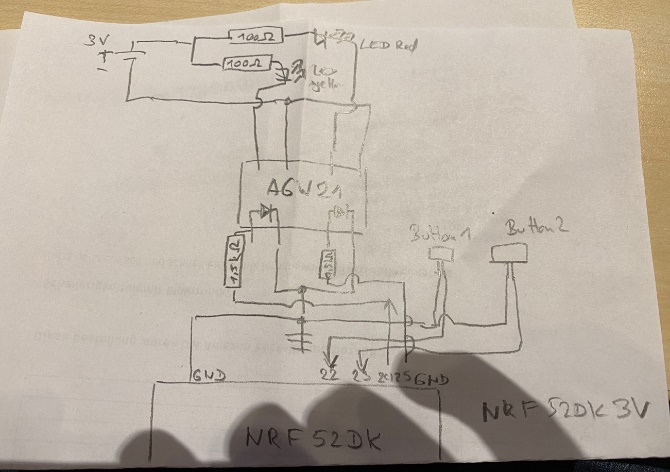 3V
+
-
100Ω
100Ω
LED Red
LED
AGW21
1,5kΩ
Button 1
Button 2
GND
22
23
GND
NRF52DK
NRF52DK 3V